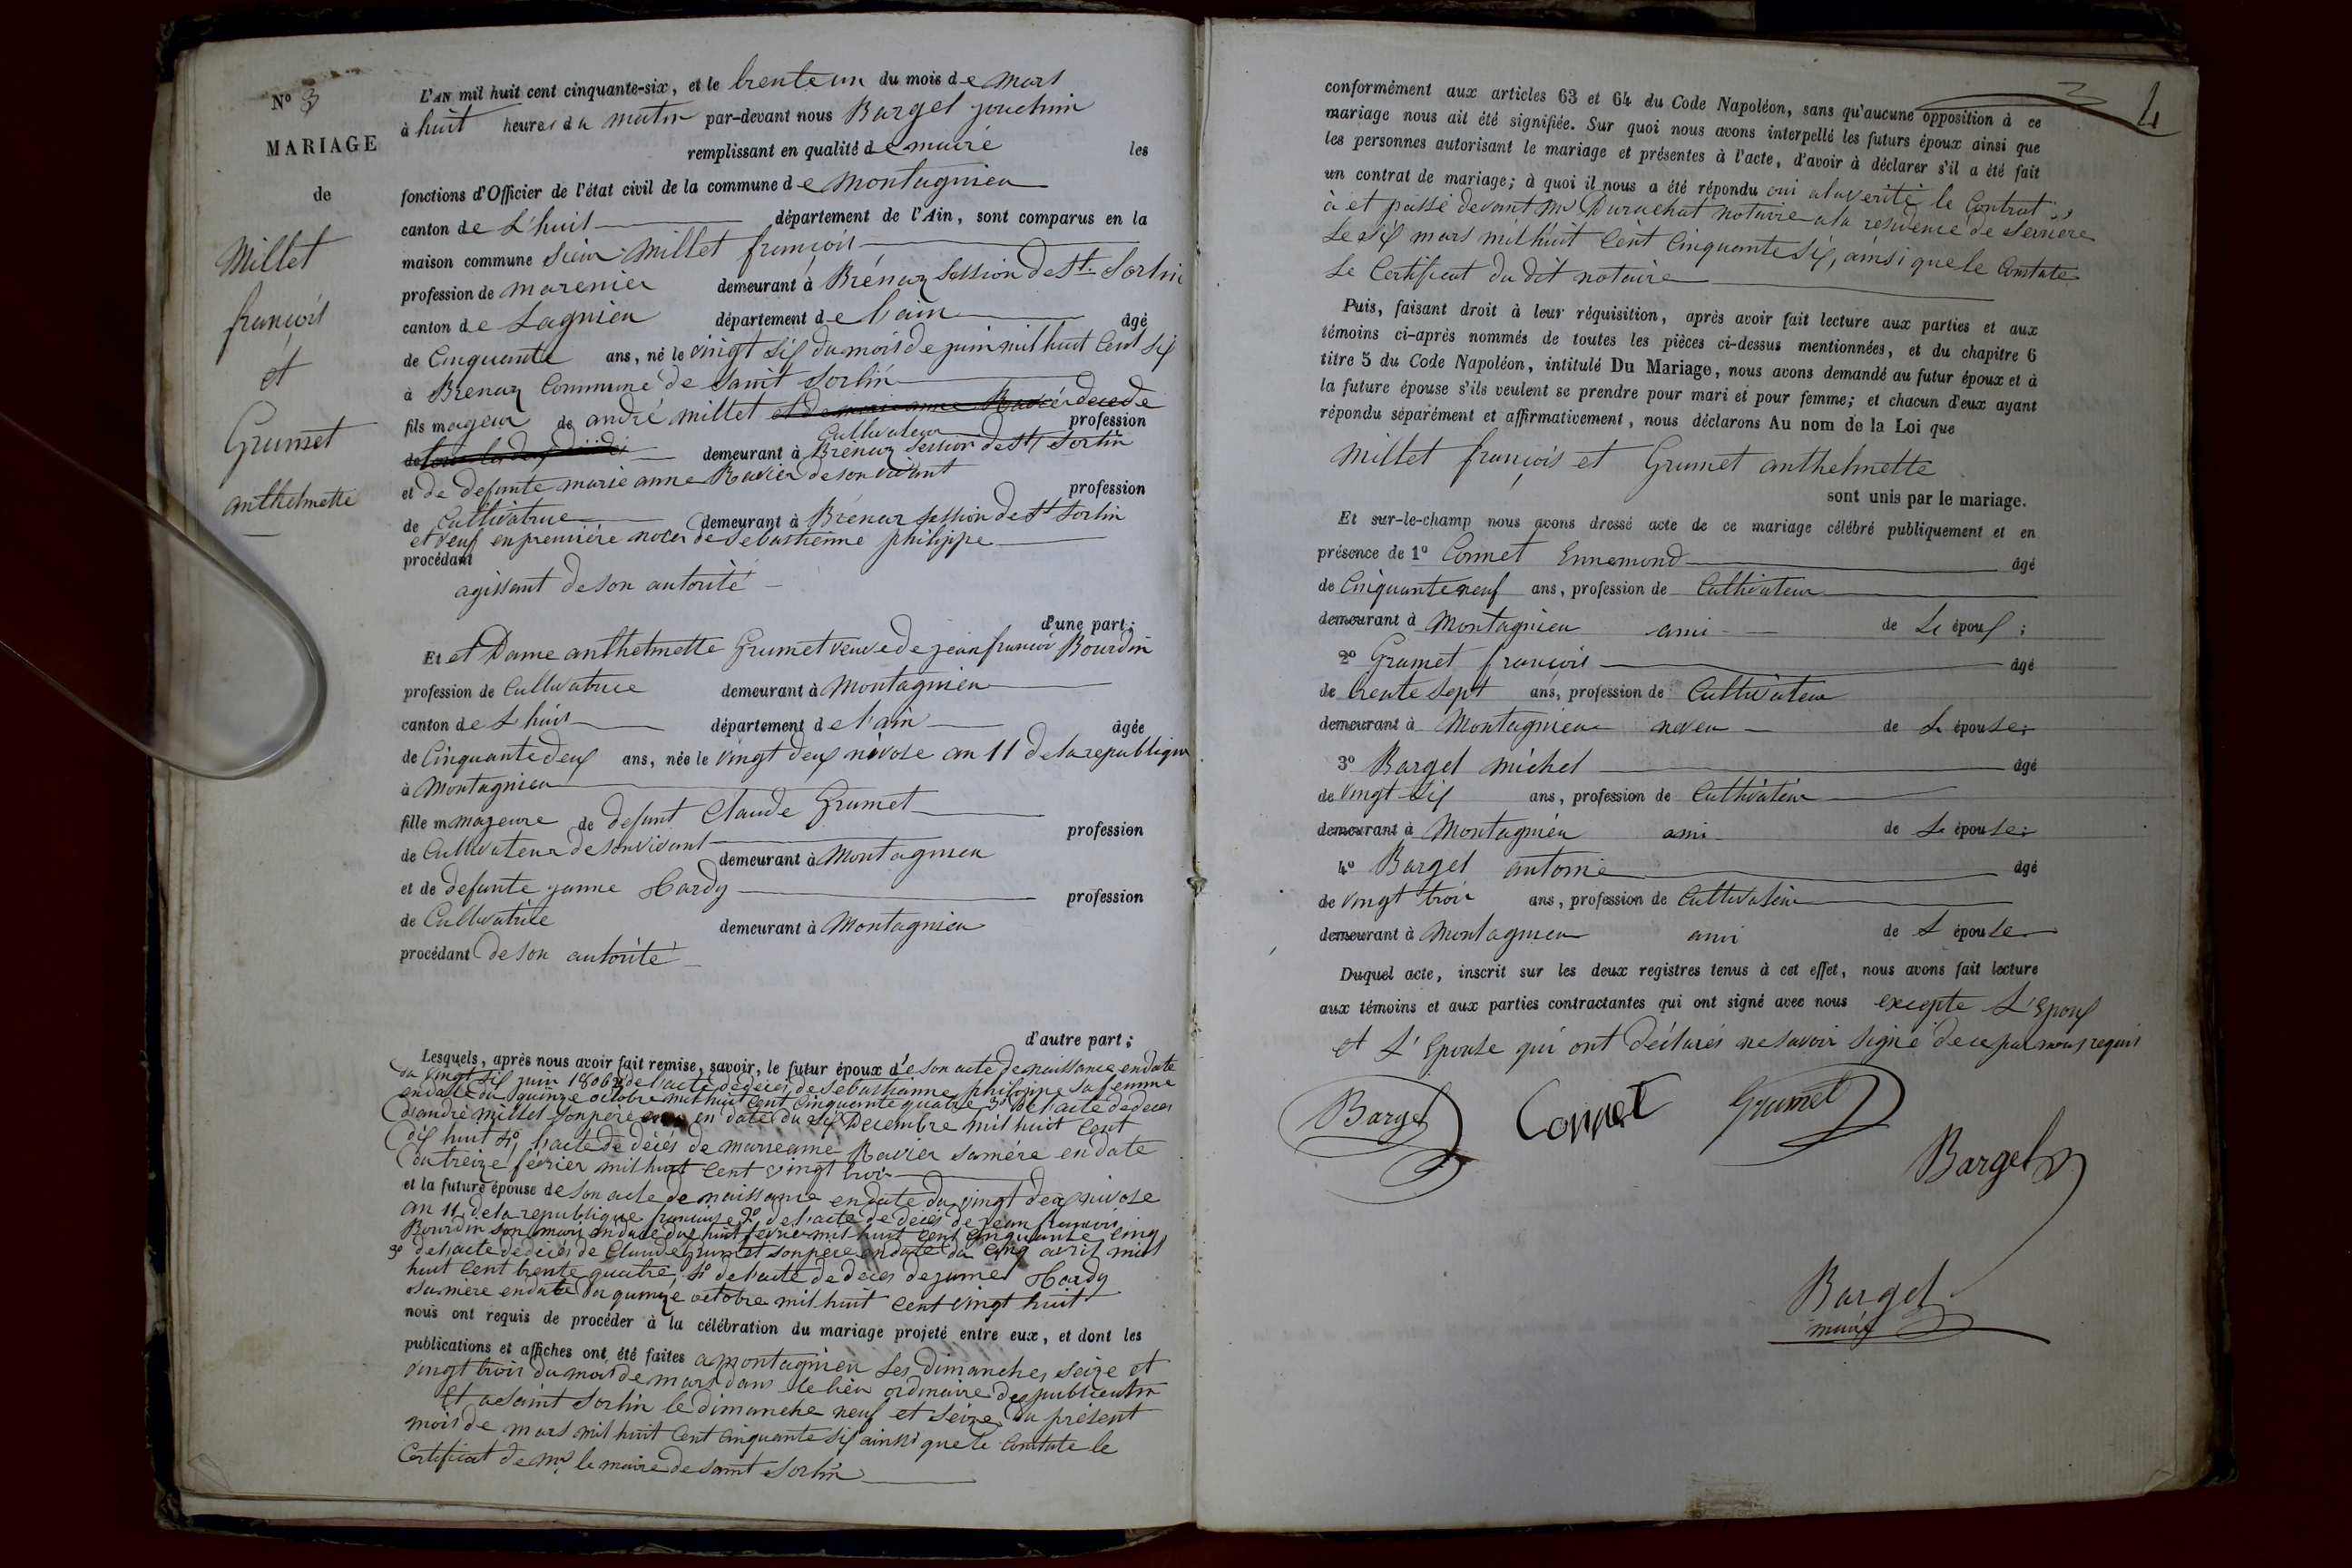 N° 3
MARIAGE
de
Millet
françois
et
Grumet
anthelmette
L'AN mil huit cent cinquante-six, et le trente un du mois de mars
à huit heures du matin par-devant nous Bargel joachim
remplissant en qualité de maire les
fonctions d'Officier de l'état civil de la commune de montagnieu
canton de L'huis département de l'Ain, sont comparus en la
maison commune Sieur millet françois
profession de marenier demeurant à Brénaz session de St. Sorlin
canton de Lagnieu département de l'ain âgé
de Cinquante ans, né le vingt six du mois de juin mil huit Cent six
à Brenaz Commune de saint Sorlin
fils mageur de andré millet et de marie anne Ravier décédé
Cultivateur profession
de tous les deux demeurant à Brénaz session de St Sorlin
et de defunte marie anne Ravier de son vivant
profession
de Cultivatrice demeurant à Brénaz session de St Sorlin
et veuf en première noces de Sebastienne philippe
procédant
agissant de son autorité
d'une part;
Et et Dame anthelmette Grumet veuve de jean françois Bourdin
profession de Cultivatrice demeurant à Montagnieu
canton de L'huis département de l'ain âgée
de Cinquante deux ans, née le vingt deux nivose an 11 de la republique
à Montagnieu
fille m mageure de defunt Claude Grumet
profession
de Cultivateur de son vivant demeurant à Montagnieu
et de defunte janne Hardy
profession
de Cultivatrice demeurant à Montagnieu
procédant de son autorité
d'autre part;
Lesquels, après nous avoir fait remise, savoir, le futur époux de son acte de naissance en date
du vingt six juin 1806 2° de l'acte de décès de Sebastianne philippe sa femme
en date du quinze octobre mil huit Cent Cinquante quatre 3° de l'acte de deces
d'andré millet son père en date du six Decembre mil huit Cent
dix huit 4° l'acte de décès de marieanne Ravier sa mère en date
du treize février mil huit Cent vingt trois
et la future épouse de son acte de naissance en date du vingt deux nivose
an 11 de la republique francaise 2° de l'acte de décès de jean francois
Bourdin son mari en date du huit fevrier mil huit Cent Cinquante cinq
3° de l'acte de décès de Claude Grumet son père en date du cinq avril mil
huit Cent trente quatre, 4° de l'acte de deces de janne Hardy
sa mère en date du quinze octobre mil huit Cent vingt huit
nous ont requis de procéder à la célébration du mariage projeté entre eux, et dont les
publications et affiches ont été faites a montagnieu les dimanches seize et
vingt trois du mois de mars dans le lieu ordinaire des publication
Et a Saint Sorlin le dimanche neuf et seize du présent
mois de mars mil huit Cent Cinquante six ainsi que le Constate le
Certificat de Mr le maire de saint Sorlin
4
conformément aux articles 63 et 64 du Code Napoléon, sans qu'aucune opposition à ce
mariage nous ait été signifiée. Sur quoi nous avons interpellé les futurs époux ainsi que
les personnes autorisant le mariage et présentes à l'acte, d'avoir à déclarer s'il a été fait
un contrat de mariage; à quoi il nous a été répondu oui a la verité le Contrat
à et passé devant Mr Durachat notaire a la residence de Serrière
Le six mars mil huit Cent Cinquante six, ainsi que le Constate
Le Certificat du dit notaire
Puis, faisant droit à leur réquisition, après avoir fait lecture aux parties et aux
témoins ci-après nommés de toutes les pièces ci-dessus mentionnées, et du chapitre 6
titre 5 du Code Napoléon, intitulé Du Mariage, nous avons demandé au futur époux et à
la future épouse s'ils veulent se prendre pour mari et pour femme; et chacun d'eux ayant
répondu séparément et affirmativement, nous déclarons Au nom de la Loi que
Millet françois et Grumet anthelmette
sont unis par le mariage.
Et sur-le-champ nous avons dressé acte de ce mariage célébré publiquement et en
présence de 1° Connet Ennemond âgé
de Cinquante neuf ans, profession de Cultivateur
demeurant à Montagnieu ami de L époux;
2° Grumet françois âgé
de trente sept ans, profession de Cultivateur
demeurant à Montagnieu neveu de L épouse;
3° Bargel michel âgé
de vingt six ans, profession de Cultivateur
demeurant à Montagnieu ami de L épouse;
4° Bargel antoine âgé
de vingt trois ans, profession de Cultivateur
demeurant à Montagnieu ami de L épouse
Duquel acte, inscrit sur les deux registres tenus à cet effet, nous avons fait lecture
aux témoins et aux parties contractantes qui ont signé avec nous excepte L'Epoux
et L'Epouse qui ont déclarés ne savoir signé de ce par nous requis
Bargel Connet Grumet
Bargel
Bargel
maire